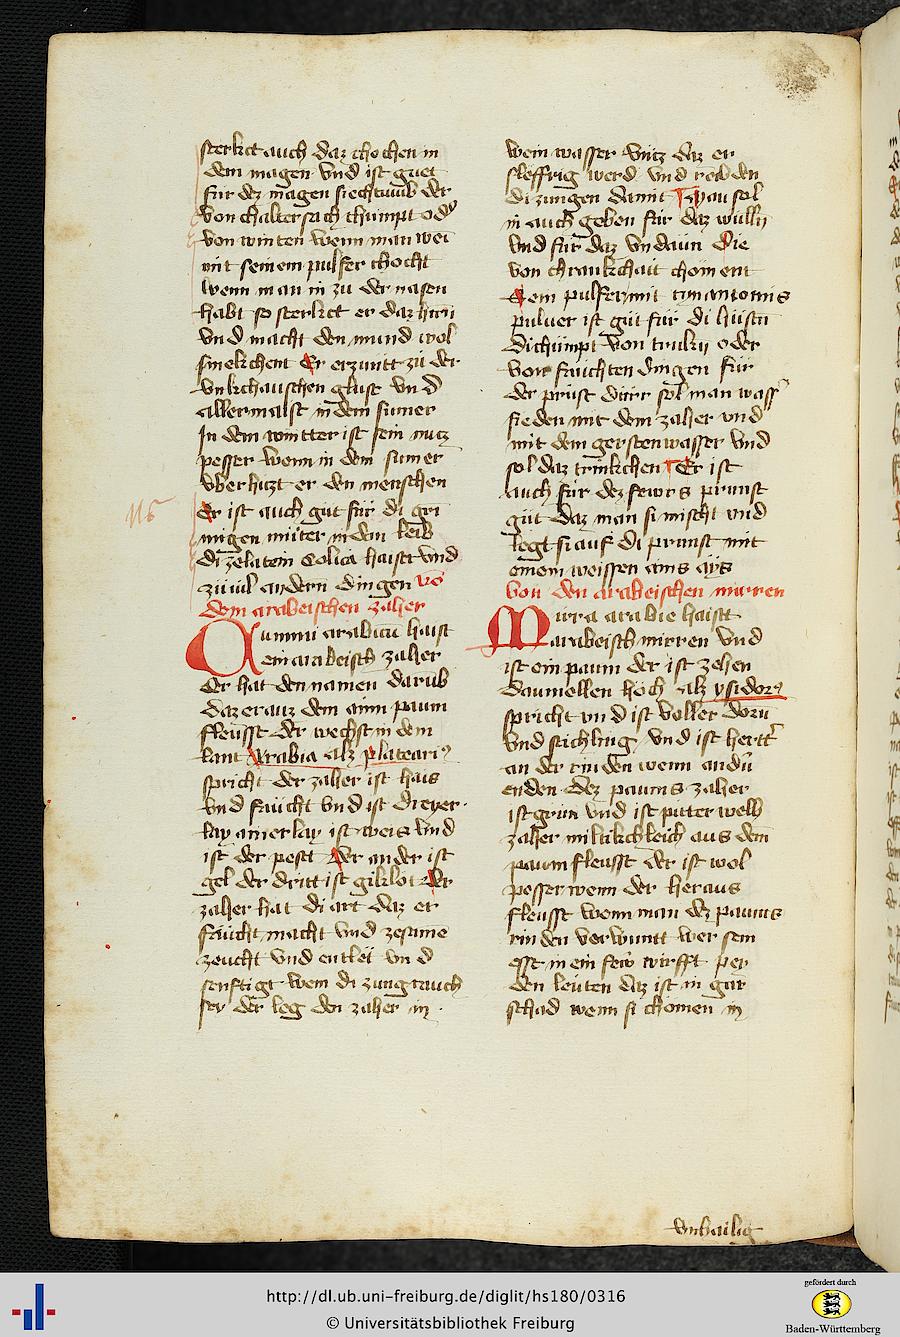 sterkct auch daz chochen in
dem magen vnd ist guet
für dez magen siechtumb der
von chalter sach chümpt oder
von winten wenn man wei
mit seinem pulfer chocht
wenn man in zu der nasen
habt so sterkct er daz hirn
vnd macht den mund wol
smekchent Er erzünt zü der
vnkchauschen glust vnd
allermaist in dem sumer
In dem wintter ist sein nucz
pesser wenn in dem sumer
vberhiczt er den menschen
Er ist auch gut für di gri
migen müter in dem leib
di ze latein Colica haist vnd
zü uil andern dingen vō
dem arabeischen zaher
Gummi arabicū haist
ein arabeisch zaher
Er hat den namen darub
daz er auz dem ainn paum
fleusst der wechst in dem
lant Arabia alz platearius
spricht der zaher ist hais
vnd fäucht vnd ist dreyer
lay ainerlay ist weis vnd
ist der pest Der ander ist
gel der dritt ist gilblot Der
zaher hat di art daz er
fäucht macht vnd zesame
zeucht vnd entlet vnd
senftigt wem di zung rauch
sey der leg den zaher in
wein wasser vntz daz er
sleffrig werd vnd reib den
di zungen damit Man sol
in auch geben für daz wülln
vnd für daz vndaün Die
von chrankchait choment
Sein pulfer mit cinamomis
puluer ist güt für di hüstn
di chümpt von trukn oder
von fäuchten dingen für
der prüst dürr sol man wasser
sieden mit dem zaher vnd
mit dem gerstenwasser vnd
sol daz trinkchen Er ist
auch für dez fewrs prunst
güt daz man si mischt vnd
legt si auf di prunst mit
einem weissen ains ays
von den arabeischen mirren
Mirra arabie haistt
arabeisch mirren vnd
ist ein paum der ist zehen
daumellen höch alz ysidorus
spricht vnd ist voller dorn
vnd stichling vnd ist hertter
an der rinden wenn andn
enden Dez paums zaher
ist grün vnd ist pitter welh
zaher miltikchleich aus dem
paum fleusst der ist wol
pesser wenn der heraus
fleusst wenn man dez paums
rinden verwuntt wer sein
esst in ein fewr wirfft pey
den leüten daz ist in gar
schad wenn si chomen in
vnhailig
http://dl.ub.uni-freiburg.de/diglit/hs180/0316
© Universitätsbibliothek Freiburg
gefördert durch
Baden-Württemberg